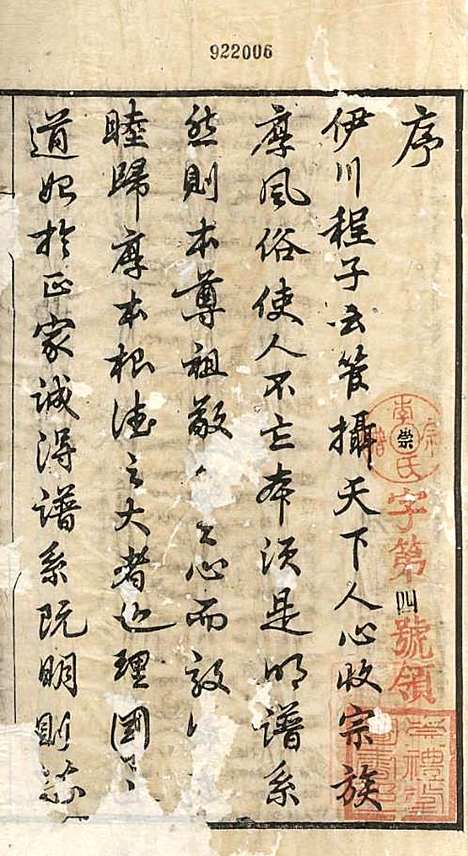 922006
序
伊川程子云管攝天下人心收宗族
厚風俗使人不忘本須是明譜系
然則本尊祖敬之心而敦
睦歸厚本根法之大者也理國之
道始於正家誠得譜系既明則
李氏宗譜
崇
字第四號領
禮堂